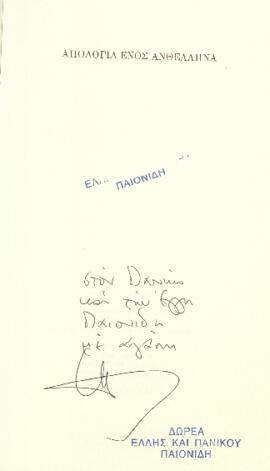 ΑΠΟΛΟΓΙΑ ΕΝΟΣ ΑΝΘΕΛΛΗΝΑ
ΠΑΙΟΝΙΔΗ
στόν Πανίκο
καί τήν Έλλη
Παιονίδη
μέ αγάπη
ΔΩΡΕΑ
ΕΛΛΗΣ ΚΑΙ ΠΑΝΙΚΟΥ
ΠΑΙΟΝΙΔΗ